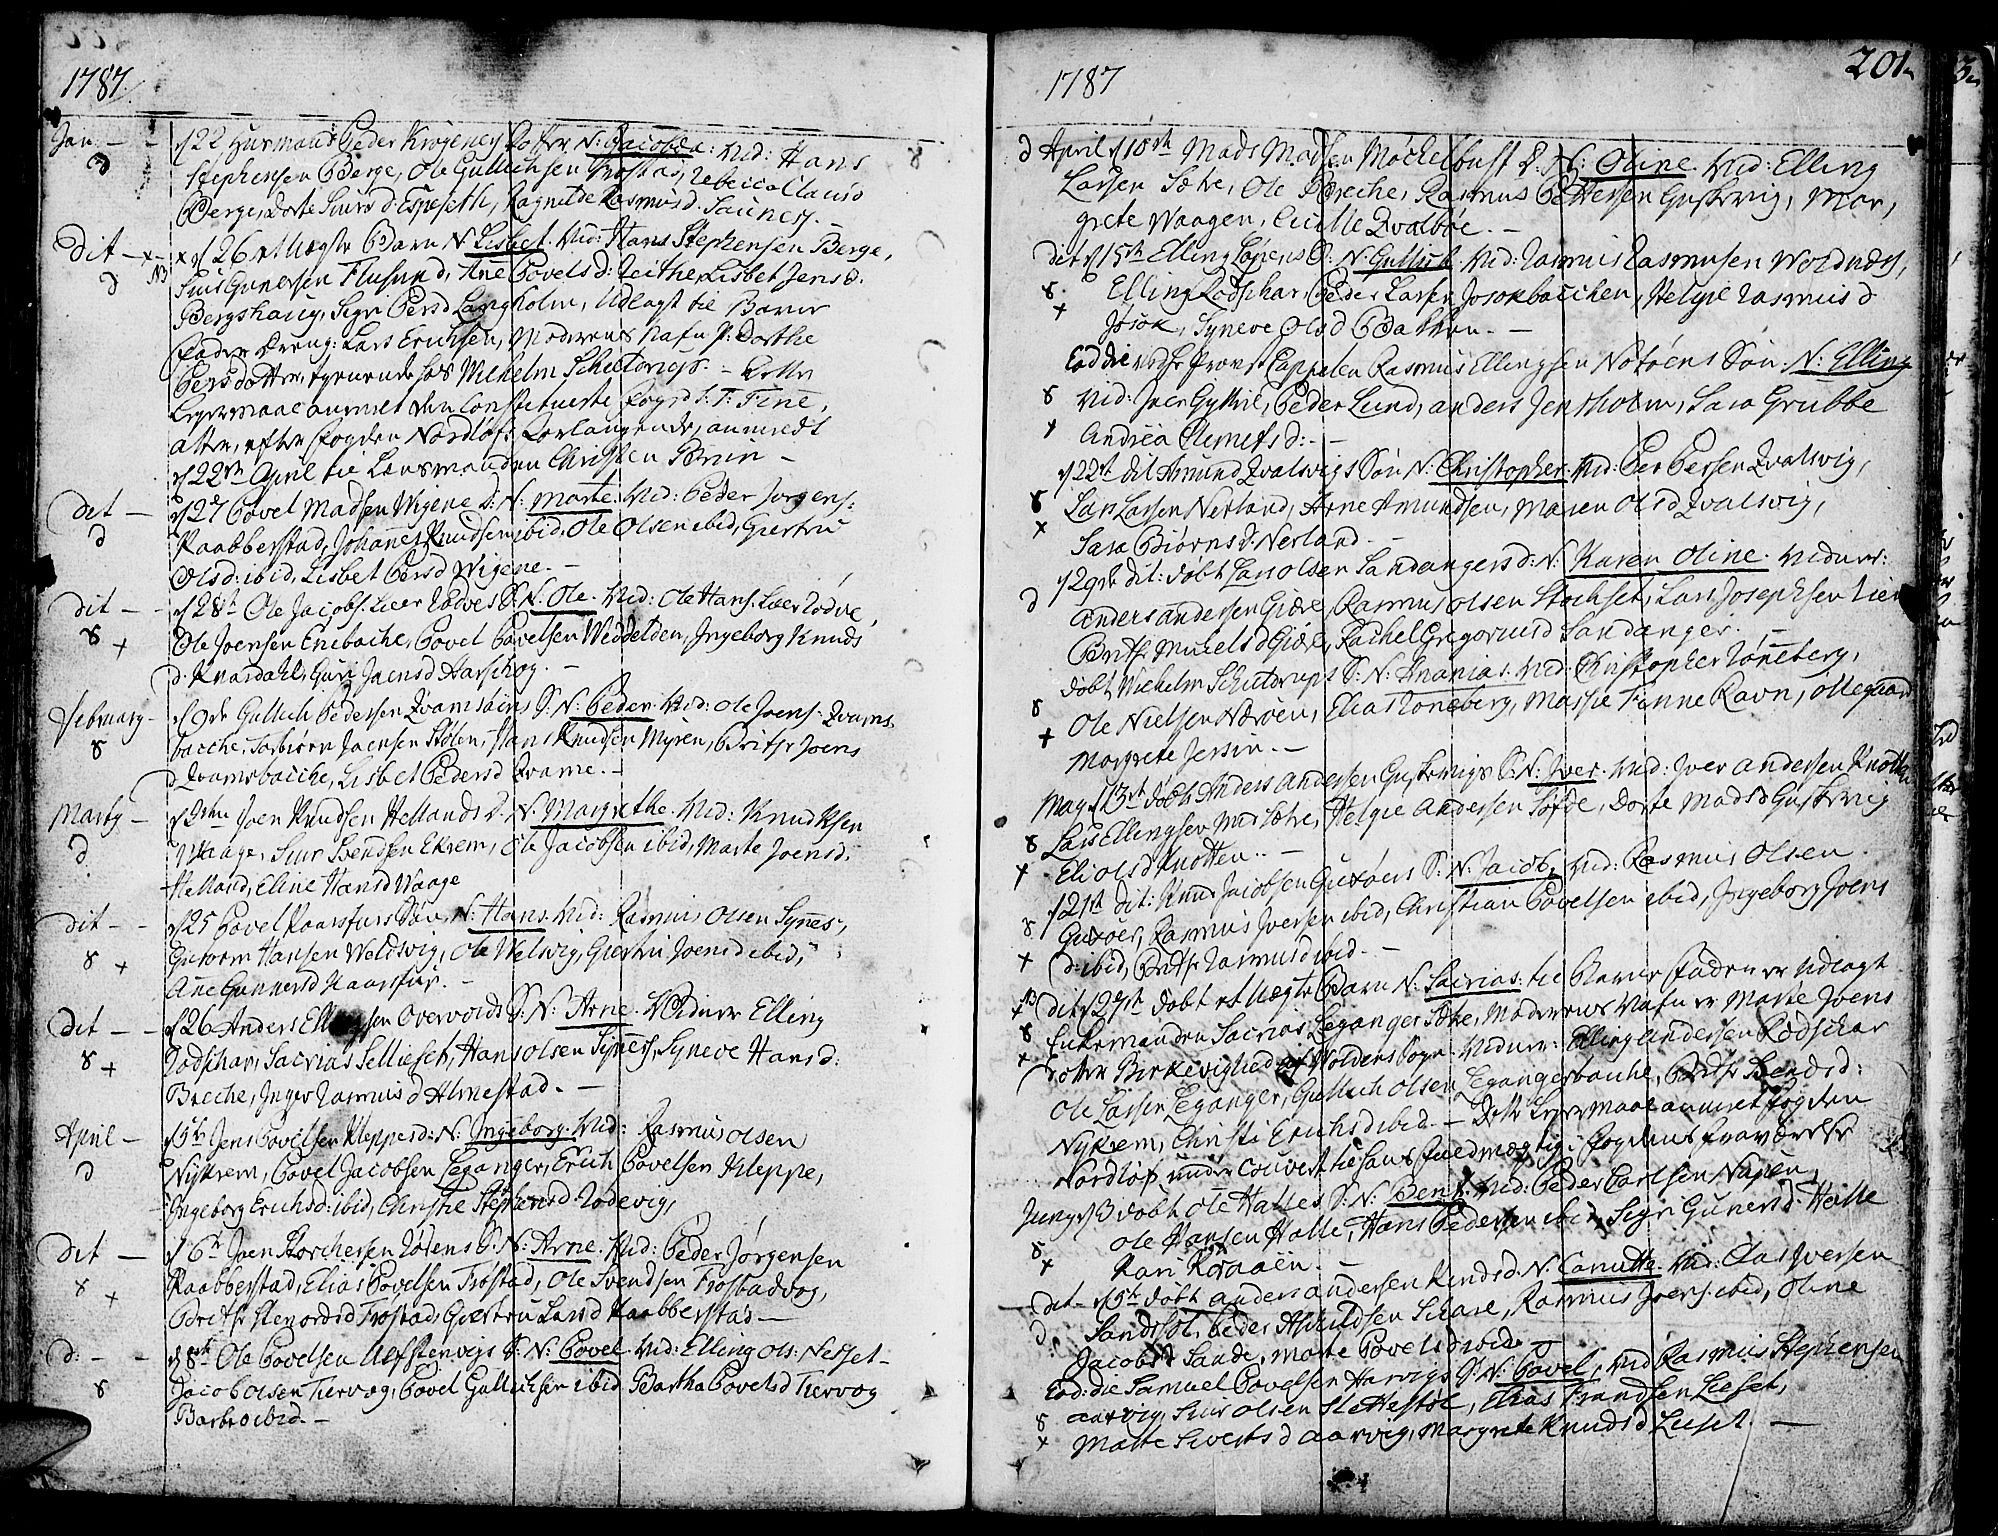 1787
Jan: d 22 Huusmand Peder Krogenes Datter N: Jacobea: Vid: Hans
Stephensen Berge, Ole Gullichsen Trostad, Rebecca Clausd
Berge, Dorte Siursd: Espeseth, Ragnilde Rasmusd. Saunes.
dit 26 et Uægte Barn N. Lisbet. Vid: Hans Stephensen Berge,
NB Siur Gunersen Flusund, Ane Povelsd: Leithe, Lisbet Jensd.
Bergshaug, Sigri Persd Langholm, Udlagt til Barne
Fader Dreng: Lars Erichsen, Moderens Nafn Dorthe
Persdotter, tjenende hos Wilhelm Schutorys. Dette
Leyermaal anmeldt den Constituerte Fogd S: T: Fine,
atter, efter Fogden Nordlofs Forlangende, anmeldt
22de April til Lensmanden Christen Brun
dit 27 Povel Madsen Wigene D: N: Marte. Vid: Peder Jørgens:
d Raabberstad, Johannes Knudsen ibid, Ole Olsen ibid, Giertru
Olsd: ibid, Lisbet Persd Wigene.
dit 28 Ole Jacobs. Leer Rødves S: N: Ole. Vid: Ole Hans. Leer Rødve,
8 + Ole Joensen Enebache, Povel Povelsen Weddelden, Ingeborg Knuds
d. Knardahl, Guri Joensd Aarschog.
February 9de Gullich Pedersen Qvamsøens S: N: Peder. Vid: Ole Joens: Qvams
8 bacche, Torbiørn Joensen Stølen, Hans Knudsen Myren, Brithe Joens
d Qvamsbacche, Lisbet Pedersd Qvame.
Marty Joen Knudsen Hellands D: N: Margrethe. Vid: Knud Ksen
d Waage, Siur Bendsen Ekrem, Ole Jacobsen ibid, Marte Joensd.
Helland, Eline Hansd Waage
dit 25 Povel Kaarsfurs Søn, N: Hans. Vid: Rasmus Olsen Synes,
8 + Gutorm Hansen Weldsvig, Ole Welsvig, Giertru Joensd ibid,
Ane Gunnersd Kaarsfur.
dit 26 Anders Ellingsen Overvolds S: N: Arne. Vidner Elling
8 + Rodschar, Sacrias Selliesæt, Hans Olsen Sipnes, Syneve Hansd:
Breche, Inger Rasmusd Almestad.
April 5te Jens Povelsen Kleppes D: N: Ingeborg. Vid: Rasmus Olsen
d Nykrem, Povel Jacobsen Leganger, Erich Povelsen Kleppe,
Ingeborg Erichsd: ibid, Christie Stephensd Rødevig,
dit 6te Joen Storchersen Røsens S: N: Arne. Vid: Peder Jørgensen
8 + Raabberstad, Elias Povelsen Trostad, Ole Svendsen Trostadvog,
Brithe Stenordsd Trostad, Giertru Larsd Raabberstad
d: 8de Ole Povelsen Ulfstenvigs S: N: Povel Vid: Elling Ols: Nesset
8 Jacob Olsen Tiervog, Povel Gullichsen ibid Bartha Povelsd Tiervog
Barbro ibid.
1787
201
d April 10de Mads Madsen Møchelbust D: N: Oline. Vid: Elling
Larsen Sætre, Ole Breche, Rasmus Pettersen Guskevig, Mar,
grete Waagen, Cicille Qvalbøe.
dit 15de Elling Løsens S: N: Gullich. Vid: Rasmus Rasmussen Woldnes,
8 Elling Rodschar, Peder Larsen Josokbacchen, Helgie Rasmusd
+ Josok, Syneve Olsd Bakken.
Eod die Cappelen Rasmus Ellingsen Notøens Søn N: Elling
8 Vid: Iver Gythie, Peder Lund, Anders Jensholm, Sara Grubbe
+ Andrea Clemetsd:
22de dit Amund Qvalsvigs Søn N: Christopher. Vid: Per Persen Qvalsvig,
8 Lars Larsen Nerland, Arne Amundsen, Maren Olsd Qvalsvig,
+ Sara Biørnsd. Nerland.
29de dit: døbt Lars Olsen Sandangers D: N: Karen Oline. Vidner:
d Anders Andersen Giøre, Rasmus Olsen Stochset, Lars Josephsen
Brithe Nielsd Giøre, Rachel Gregoriusd Sandanger.
døbt Wilhelm Schutorps S: N: Ananias. Vid: Christopher Rønneberg,
8 Ole Nielsen Nærøen, Elias Røneberg, Massie Finne Ravn, Ollegaard
+ Margrete Jessin.
May 13de døbt Anders Andersen Guskevigs S: N: Iver. Vid: Iver Andersen Knotten
8 Lars Ellingsen Sætre, Helgie Andersen Søfde, Dorte Madsd Guskevig
+ Eli Olsd Knotten.
21de dit: Knud Jacobsen Gurøens S: N: Jacob, Vid: Rasmus Olsen
8 Gurøen, Rasmus Iversen ibid, Christian Povelsen ibid, Ingeborg Joens
+ d: ibid, Brithe Rasmusd ibid.
NB dit 27de døbt et Uægte Barn N: Sacrias: til Barne Fader er Udlagt
8 Enkemanden Sacrias Leganger Sætre, Moderens Nafn er Marte Joens
+ dotter Birkevighed af Woldens Sogn. Vidner: Elling Andersen Rodschar
Ole Larsen Leganger, Gullich Olsen Legangerbache, Brithe Bendsd:
Nykrem, Christi Erichsd ibid. — Dette Leyermaal anmeldt Fogden
Nordlof under Couvert til hans Fuldmægtig i Fogdens Fraværelse
Juny 3 døbt Ole Halles S: N: Bent. Vid: Peder Carlsen Napen,
8 Ole Hansen Halle, Hans Pedersen ibid, Sigri Gunersd. Heille
+ Kari Kraaen.
dit 9de døbt Anders Andersen Kindsd. N. Canutte. Vid: Clas Iversen
d Sandssøl, Peder Schare, Rasmus Joens. ibid, Oline
Jacobsd Sande, Marte Povelsd ibid.
Eod: die Samuel Povelsen Aarvigs S: N: Povel, Vid Rasmus Stephensen
8 Aarvig, Siur Olsen Slettestøl, Elias Frandsen Lieset,
+ Malte Siversd Aarvig, Margrete Knudsd Lieset.